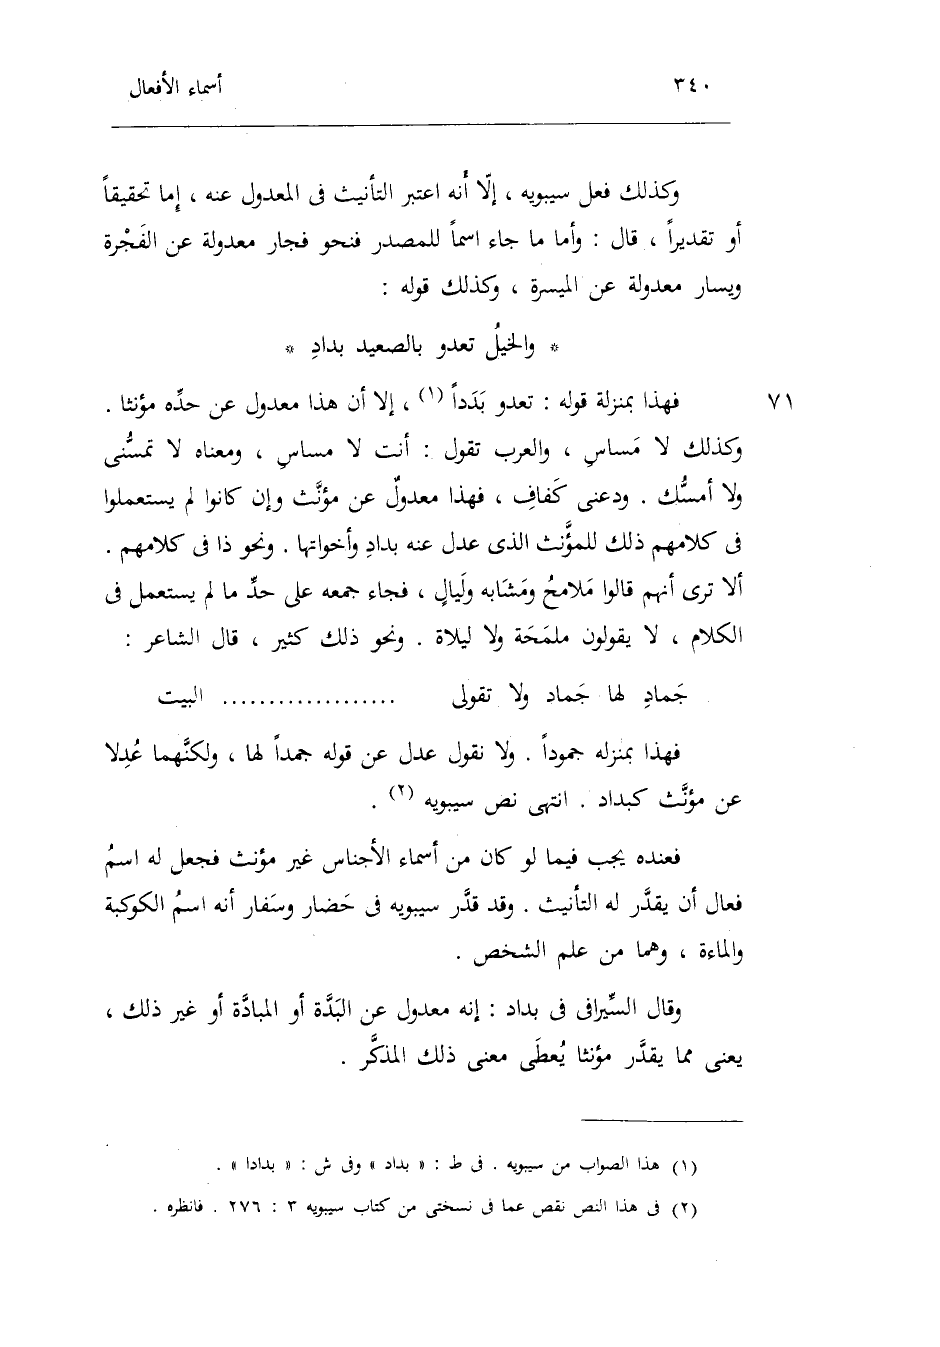 ٣٤٠ أسماء الأفعال
وكذلك فعل سيبويه ، إلّا أَنه اعتبر التأنيث فى المعدول عنه ، إِما تحقيقاً
أو تقديراً ، قال : وأما ما جاء اسماً للمصدر فنحو فجار معدولة عن الفَجْرة
ويسار معدولة عن الميسرة ، وكذلك قوله :
* والخيلُ تعدو بالصعيد بدادِ *
٧١ فهذا بمنزلة قوله : تعدو بَدَداً (١) ، إلا أن هذا معدول عن حدِّه مؤنثا .
وكذلك لا مَساسِ ، والعرب تقول : أنت لا مساسِ ، ومعناه لا تمسُّنى
ولا أمسُّك . ودعنى كَفافِ ، فهذا معدولٌ عن مؤنَّث وإن كانوا لم يستعملوا
فى كلامهم ذلك للمؤَّنث الذى عدل عنه بدادِ وأخواتها . ونحو ذا فى كلامهم .
ألا ترى أنهم قالوا مَلامحُ ومَشَابه ولَيالٍ ، فجاء جمعه على حدِّ ما لم يستعمل فى
الكلام ، لا يقولون ملمَحَة ولا ليلاة . ونحو ذلك كثير ، قال الشاعر :
جَمادِ لها جَماد ولا تقولى ................... البيت
فهذا بمنزله جموداً . ولا نقول عدل عن قوله جمداً لها ، ولكنَّهما عُدِلا
عن مؤنَّث كبداد . انتهى نص سيبويه (٢) .
فعنده يجب فيما لو كان من أسماء الأجناس غير مؤنث فجعل له اسمُ
فعال أن يقدَّر له التأنيث . وقد قدَّر سيبويه فى حَضار وسَفار أنه اسمُ الكوكبة
والماءة ، وهما من علم الشخص .
وقال السِّيرافى فى بداد : إنه معدول عن البَدَّة أو المبادَّة أو غير ذلك ،
يعنى مما يقدَّر مؤنثا يُعطَى معنى ذلك المذكَّر .
(١) هذا الصواب من سيبويه . فى ط : « بداد » وفى ش : « بدادا » .
(٢) فى هذا النص نقص عما فى نسختى من كتاب سيبويه ٣ : ٢٧٦ . فانظره .